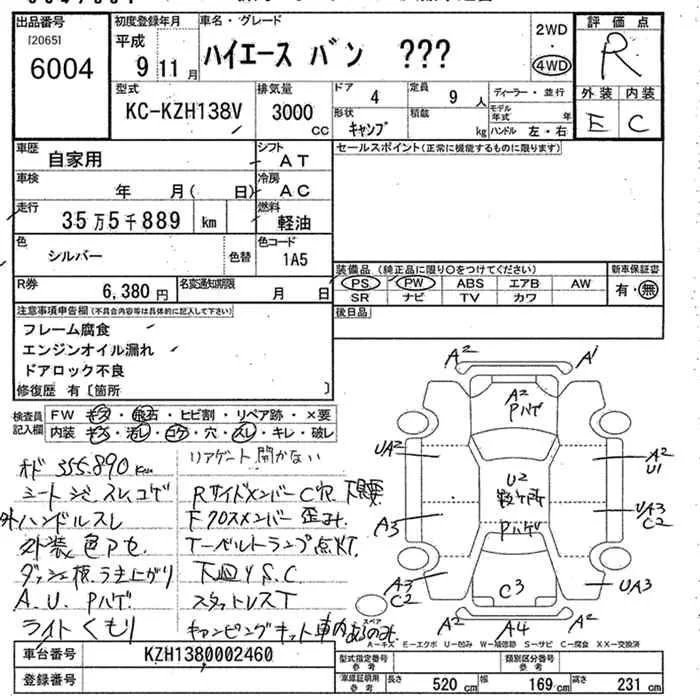 出品番号 初度登録年月 車名・グレード 2WD 評価点
[2065] 平成 ハイエース バン ??? ・ R
6004 9年11月 4WD
型式 排気量 ドア 4 定員 9人 ディーラー・並行 外装 内装
KC-KZH138V 3000cc 形状 キャンプ 積載 kg モデル年式 年 E C
ハンドル 左・右
車歴 自家用 シフト AT セールスポイント(正常に機能するものに限ります)
車検 年 月( 日) 冷房 AC
走行 35万5千889 km 燃料 軽油
色 シルバー 色替 色コード 1A5
装備品 (純正品に限り○をつけてください) 新車保証書
R券 6,380円 名変通知期限 月 日 PS PW ABS エアB AW 有・無
SR ナビ TV カワ
注意事項申告欄(不具合内容等は具体的に記入して下さい) 後日品
フレーム腐食
エンジンオイル漏れ
ドアロック不良
修復歴 有〔箇所 〕
検査員記入欄 FW キズ・飛石・ヒビ割・リペア跡・×要
内装 キズ・汚レ・コゲ・穴・スレ・キレ・破レ
オド 355.890Km リアゲート開かない
シート ジミ スレ コゲ Rサイドメンバー C穴 下腰
外ハンドルスレ 下クロスメンバー 歪み
外装色アセ T-ベルトランプ点灯
ダッシュ板うき上がり 下回りS.C
A.U.Pハゲ スタットレスT
ライトくもり キャンピングキット車内あるのみ
A2 A1
A2 Pハゲ
UA2 A2 U1
U2 数ヶ所 Pハゲ
A3 UA3 C2
A3 C2 C3 UA3
スペア A2 A4 A2
A−キズ E−エクボ U−凹み W−補修跡 S−サビ C−腐食 XX−交換済
車台番号 KZH1380002460 型式指定番号 参考 類別区分番号 参考
登録番号 車庫証明用 参考 長さ 520cm 幅 169cm 高さ 231cm